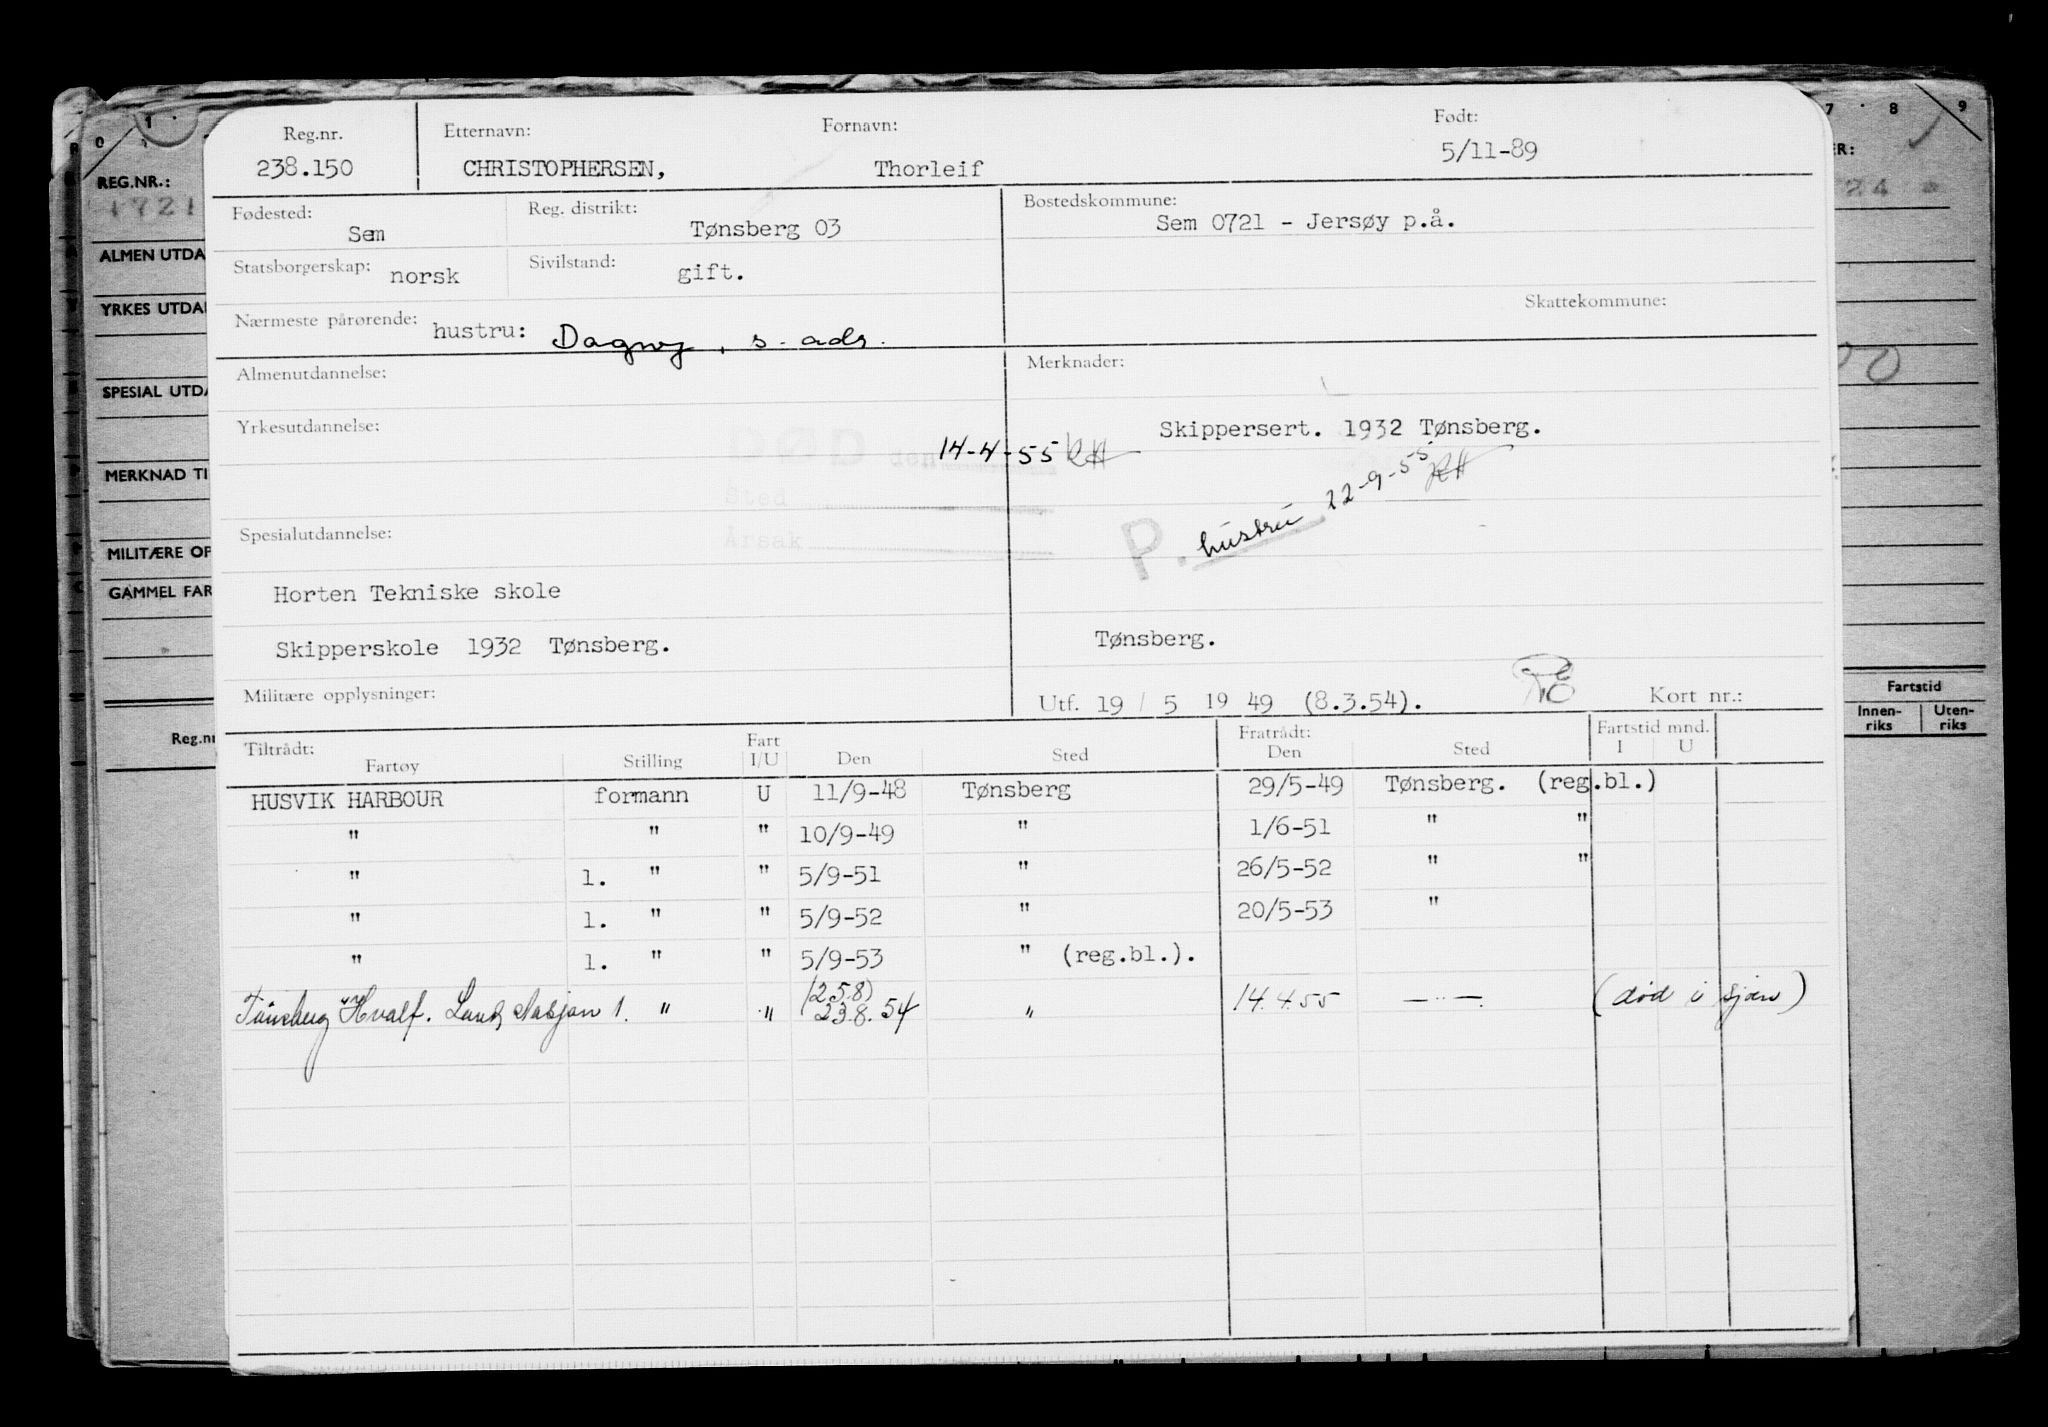 0 1 7 8 9
REG.NR.:
ALMEN UTDA
YRKES UTDA
SPECIAL UTDA
MERKNAD TI
MILITÆRE OP
GAMMEL FAR
Reg.nr
ER:
24
Fartstid
Innen-riks Uten-riks
Reg.nr. Etternavn: Fornavn: Født:
238.150 CHRISTOPHERSEN, Thorleif 5/11-89
Fødested: Reg. distrikt: Bostedskommune:
Sem Tønsberg 03 Sem 0721 - Jersøy p.å.
Statsborgerskap: norsk Sivilstand: gift.
Skattekommune:
Nærmeste pårørende: hustru: Dagny, s. adr.
Almenutdannelse: Merknader:
Yrkesutdannelse: Skippersert. 1932 Tønsberg.
DØD den 14-4-55 RH
Sted
Årsak
P. hustru 22-9-55 RH
Spesialutdannelse:
Horten Tekniske skole
Skipperskole 1932 Tønsberg. Tønsberg.
Militære opplysninger: Utf. 19 / 5 19 49 (8.3.54). Kort nr.:
Tiltrådt: Fratrådt: Fartstid mnd.
Fartøy Stilling Fart I/U Den Sted Den Sted I U
HUSVIK HARBOUR formann U 11/9-48 Tønsberg 29/5-49 Tønsberg. (reg.bl.)
" " " 10/9-49 " 1/6-51 " "
" 1. " " 5/9-51 " 26/5-52 " "
" 1. " " 5/9-52 " 20/5-53 "
" 1. " " 5/9-53 " (reg.bl.).
(25.8)
Tønsberg Hvalf. Land Stasjon 1. " " 23.8.54 " 14.4.55 — " —. (død i sjøen)